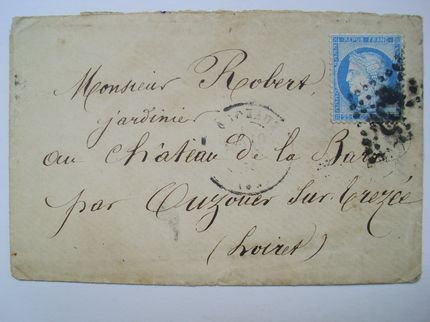 REPUB. FRANC.
Monsieur Robert,
jardinier
au Château de la
par Ouzouer sur Trezée
(Loiret)